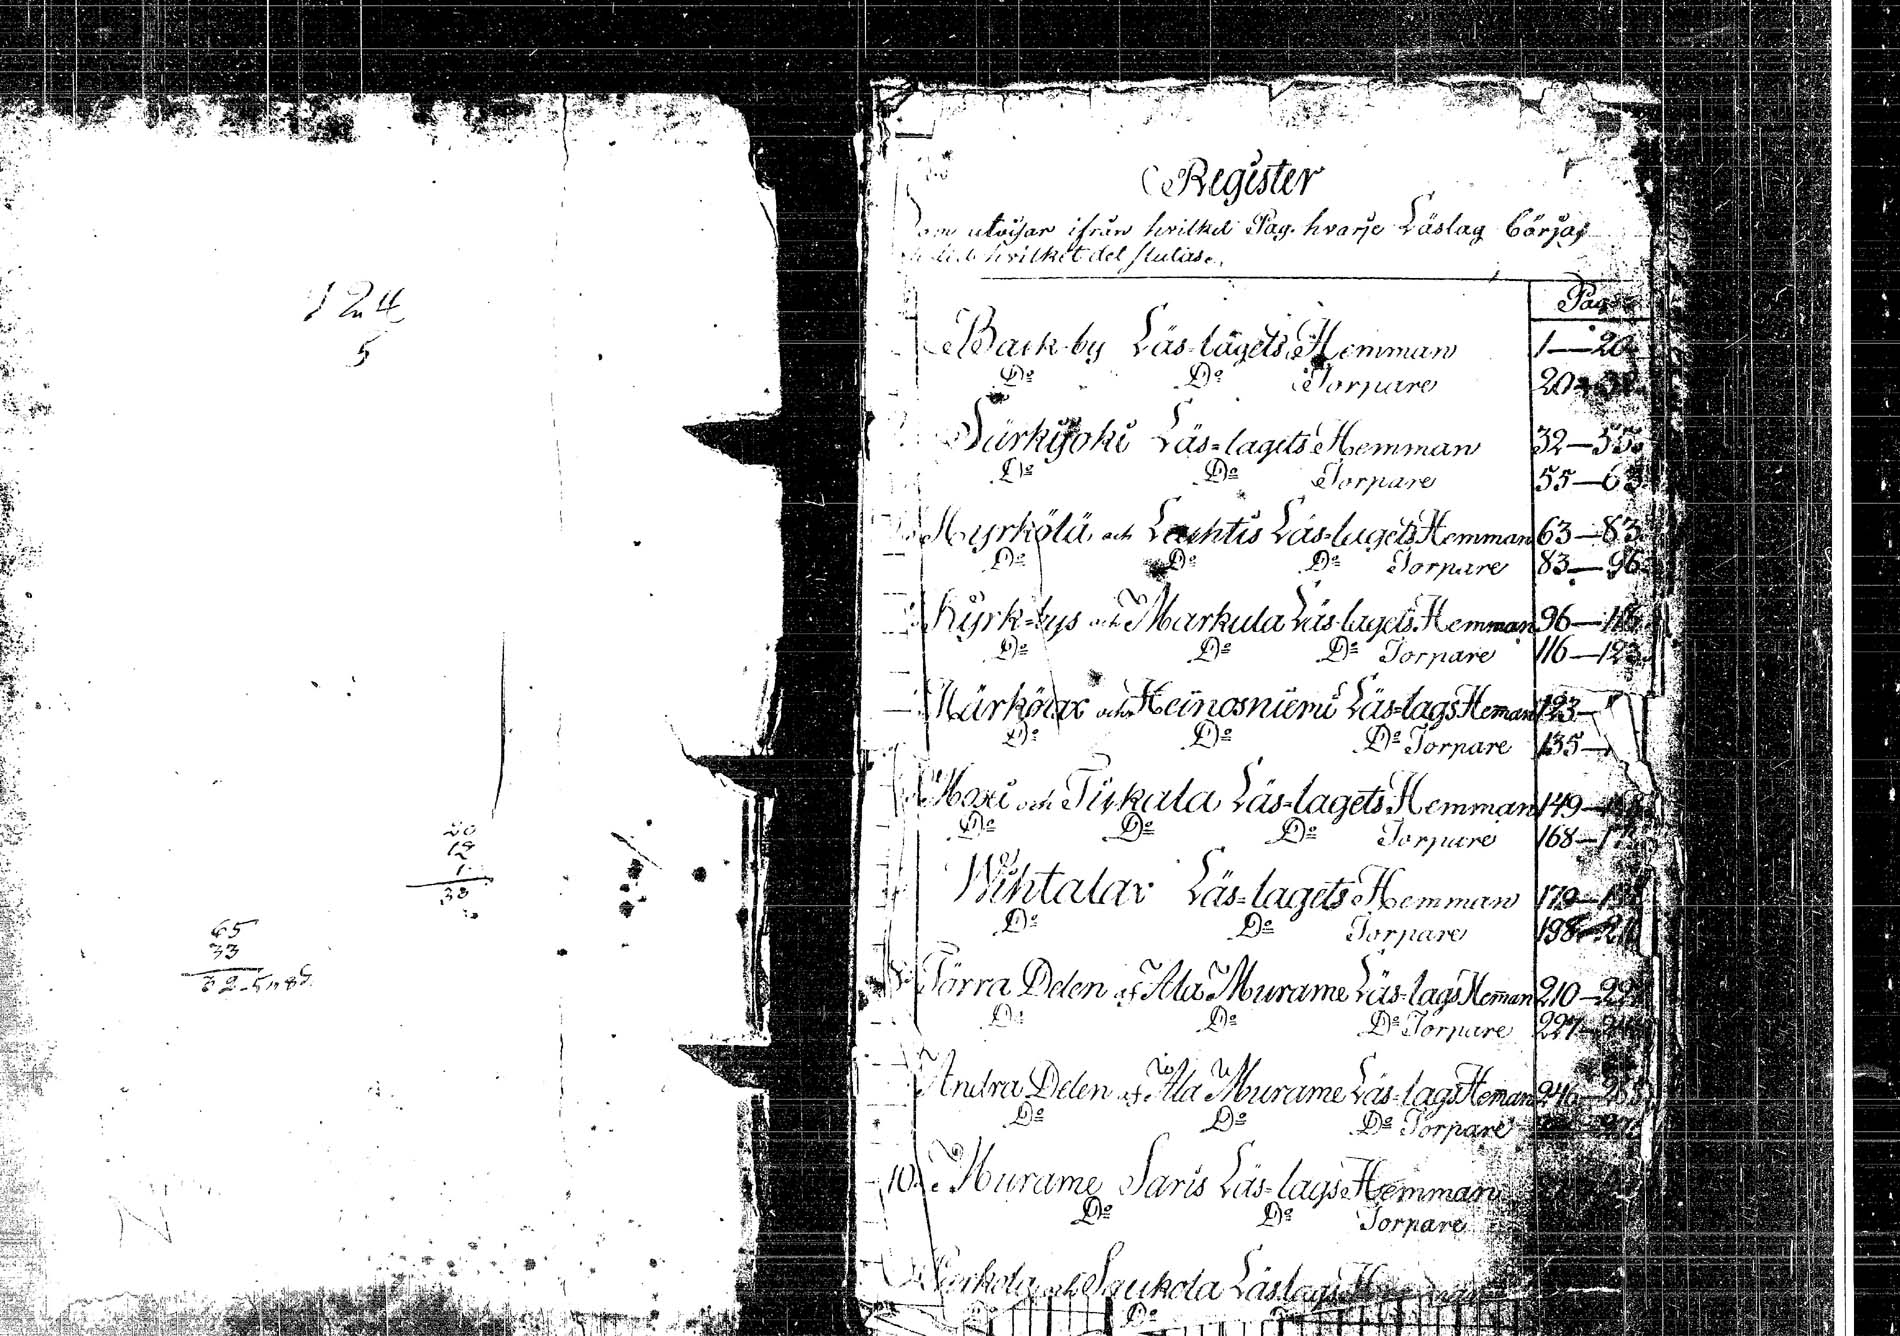 124
5
20
12
1
33
65
33
Register
utvisar ifrån hvilket Pag. hvarje Läslag börjas
hvilket det slutas.
Pag.
Back-by Läs-lagets Hemman 1—20
Do Do Torpare 20—32
Särkijoki Läs=lagets Hemman 32—55
Do Do Torpare 55—63
Hyrkölä och Lachtis Läs=lagets Hemman 63—83
Do Do Do Torpare 83—96
Kyrk=bys och Markula Läs-lagets Hemman 96—116
Do Do Do Torpare 116—123
Närkönax och Heinosniemi Läs=lags Heman 123—
Do Do Do Torpare 135—
och Tirkala Läs=lagets Hemman 149—
Do Do Do Torpare 168—
Wihtalax Läs=lagets Hemman 179—
Do Do Torpare 198—
Förra Delen af Ala Murame Läs-lags Heman 210—
Do Do Do Torpare 227—
Andra Delen af Ala Murame Läs-lags Heman 246—
Do Do Do Torpare
10. Murame Saris Läs=lags Hemman
Do Do Torpare
och Saukola Läslags
Do